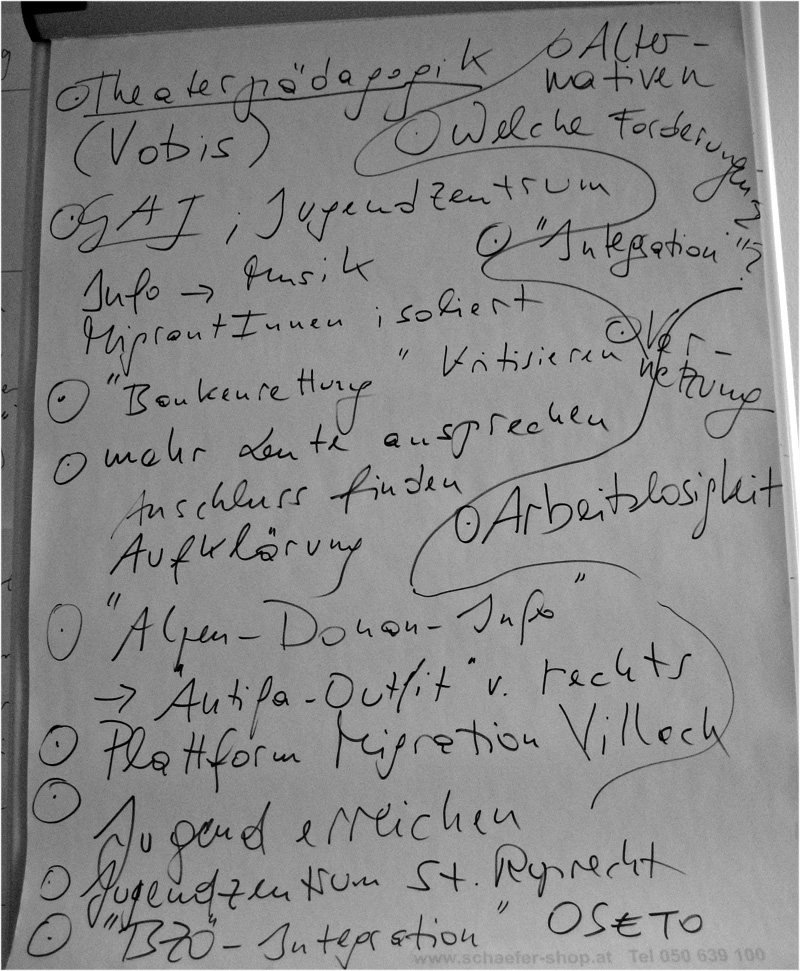 Theaterpädagogik
(Vobis)
GAJ, Jugendzentrum
Info → Musik
MigrantInnen isoliert
"Bankenrettung" kritisieren
mehr Leute ansprechen
Anschluss finden
Aufklärung
"Alpen-Donau-Info"
→ "Antifa-Outfit" v. rechts
Plattform Migration Villach
Jugend erreichen
Jugendzentrum St. Ruprecht
"BZÖ"-Integration" OSETO
Alter-
nativen
Welche Forderungen?
"Integration"?
Ver-
netzung
Arbeitslosigkeit
www.schaefer-shop.at Tel 050 639 100